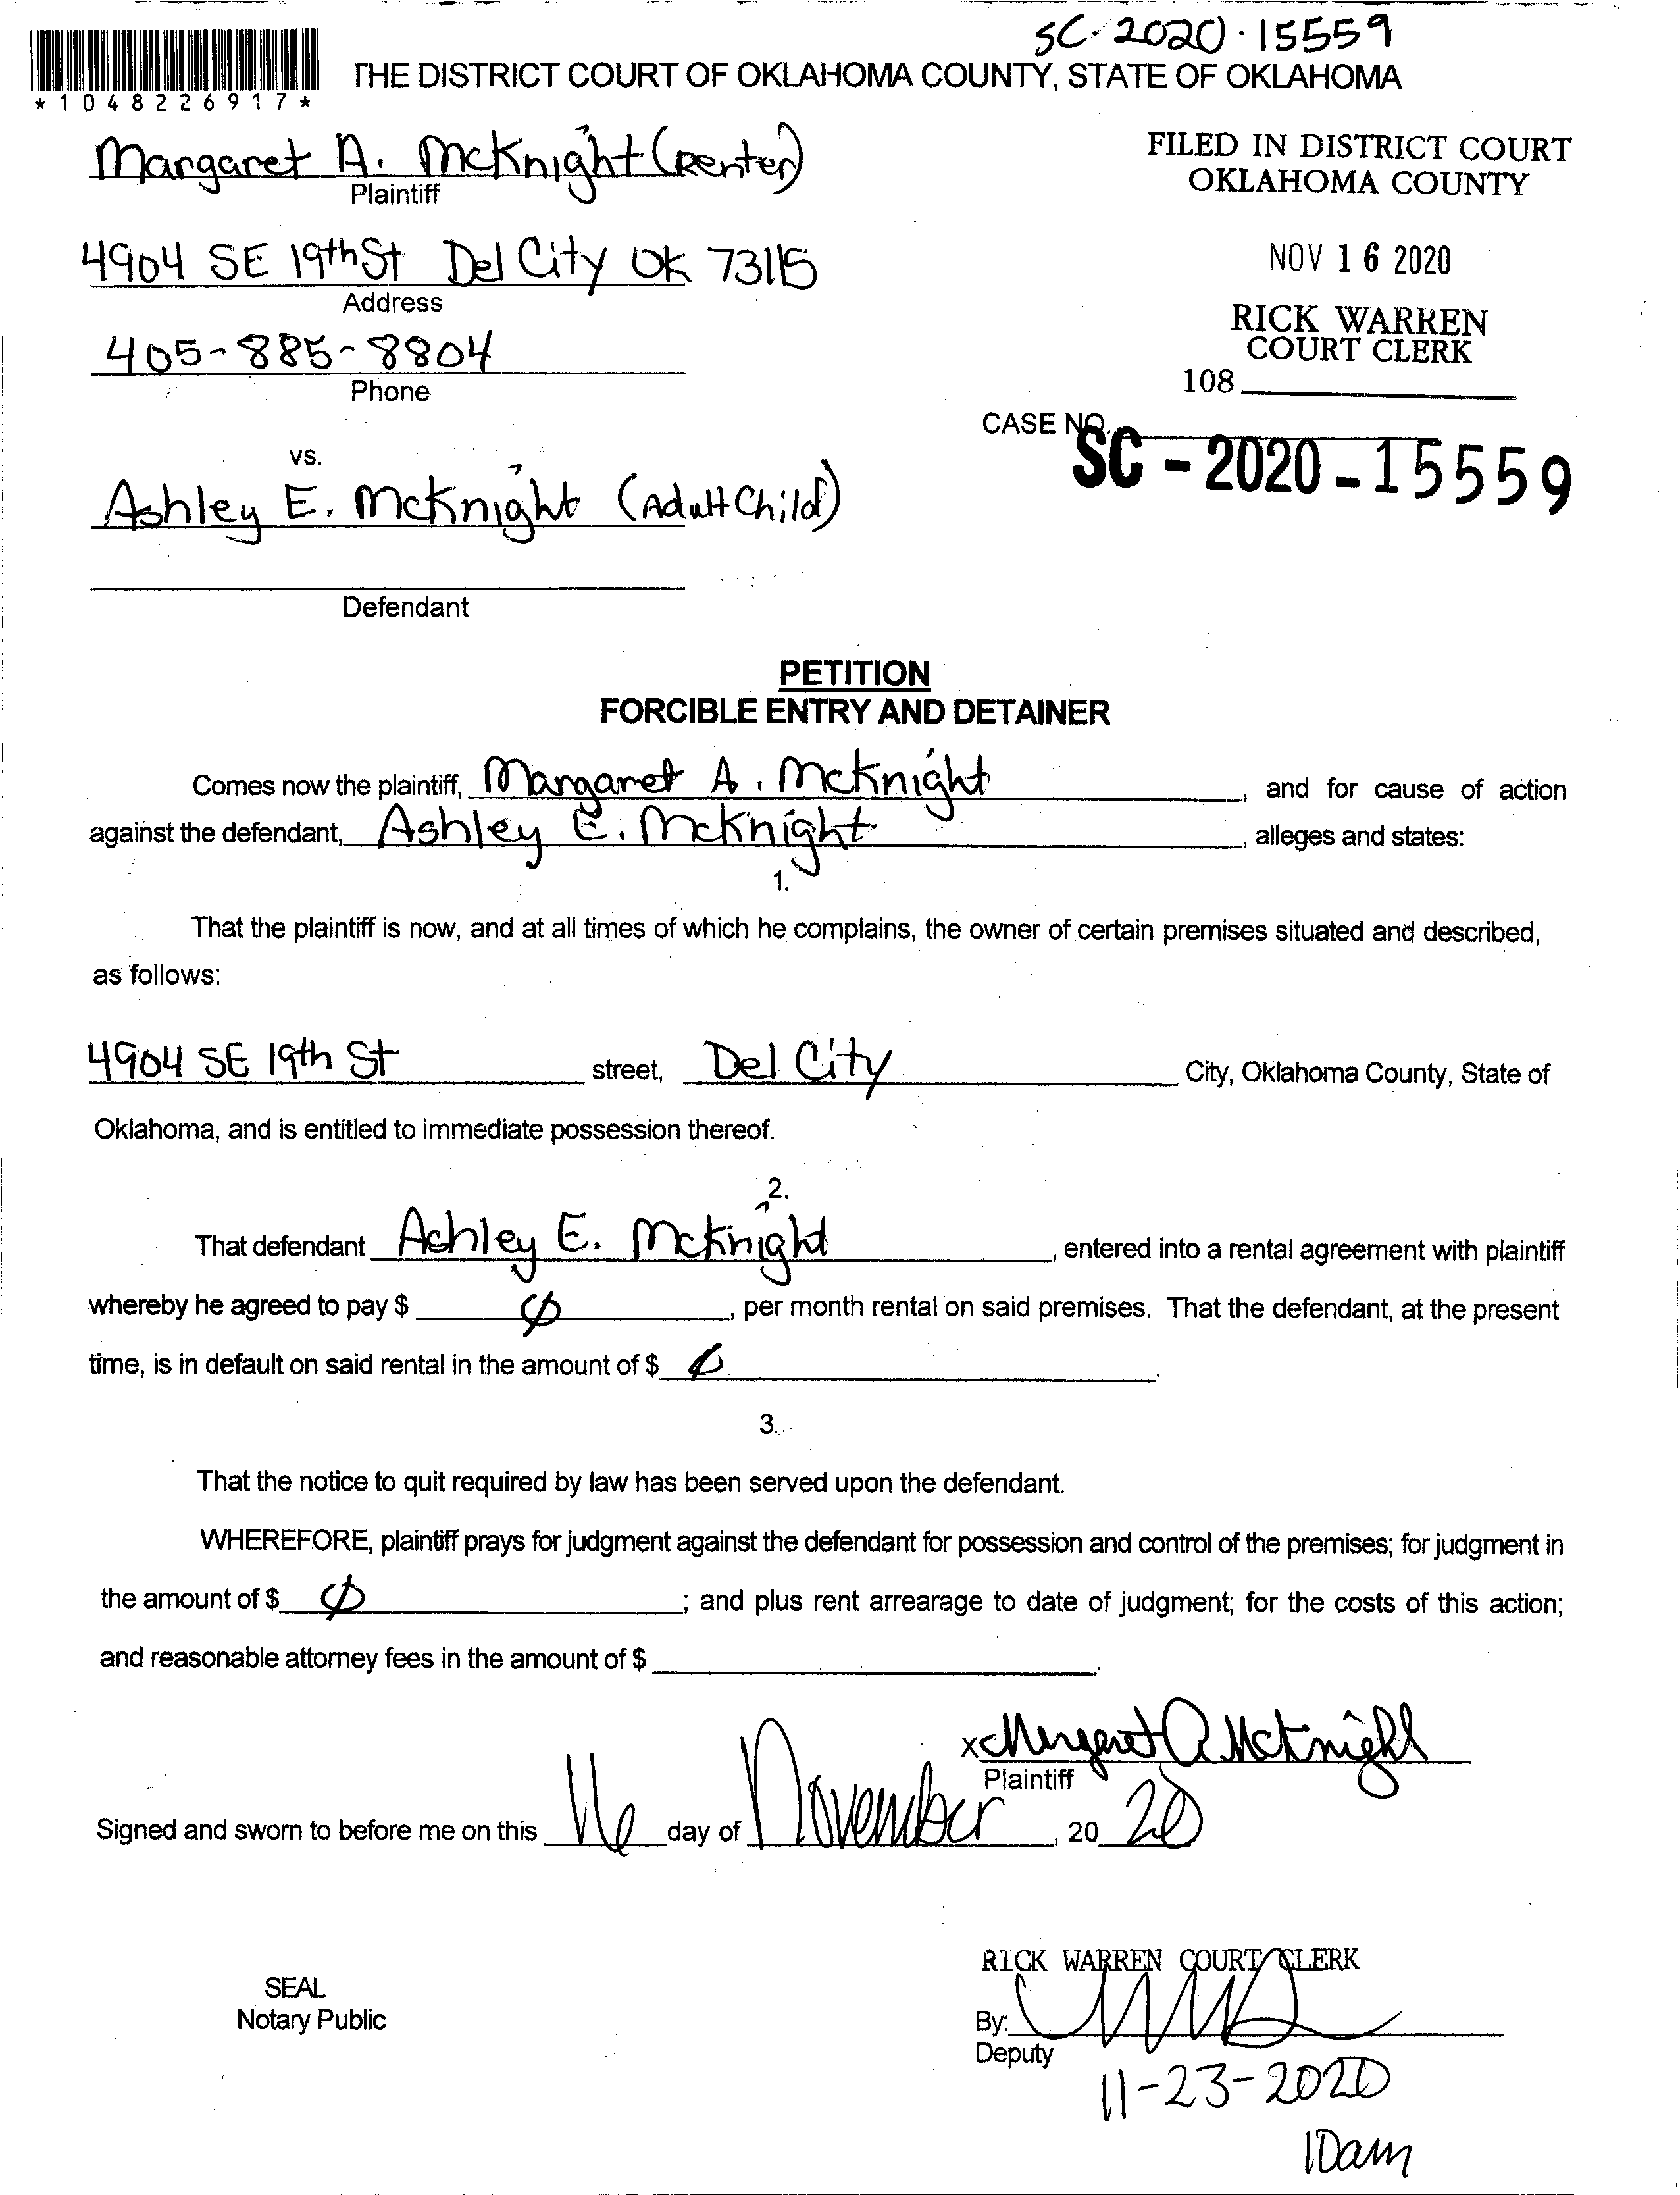 SC-2020-15559
THE DISTRICT COURT OF OKLAHOMA COUNTY, STATE OF OKLAHOMA
*1048226917*
Margaret A. McKnight (Renter)
Plaintiff
FILED IN DISTRICT COURT
OKLAHOMA COUNTY
4904 SE 19th St Del City OK 73115
Address
NOV 16 2020
405-885-8804
Phone
RICK WARREN
COURT CLERK
108
CASE NO.
SC-2020-15559
vs.
Ashley E. McKnight (Adult Child)
Defendant
PETITION
FORCIBLE ENTRY AND DETAINER
Comes now the plaintiff, Margaret A. McKnight, and for cause of action
against the defendant, Ashley E. McKnight, alleges and states:
1.
That the plaintiff is now, and at all times of which he complains, the owner of certain premises situated and described,
as follows:
4904 SE 19th St street, Del City City, Oklahoma County, State of
Oklahoma, and is entitled to immediate possession thereof.
2.
That defendant Ashley E. McKnight, entered into a rental agreement with plaintiff
whereby he agreed to pay $ ∅, per month rental on said premises. That the defendant, at the present
time, is in default on said rental in the amount of $ ∅.
3.
That the notice to quit required by law has been served upon the defendant.
WHEREFORE, plaintiff prays for judgment against the defendant for possession and control of the premises; for judgment in
the amount of $ ∅; and plus rent arrearage to date of judgment; for the costs of this action;
and reasonable attorney fees in the amount of $
x Margaret A McKnight
Plaintiff
Signed and sworn to before me on this 16 day of November, 20 20
RICK WARREN COURT CLERK
SEAL
Notary Public
By:
Deputy
11-23-2020
10am